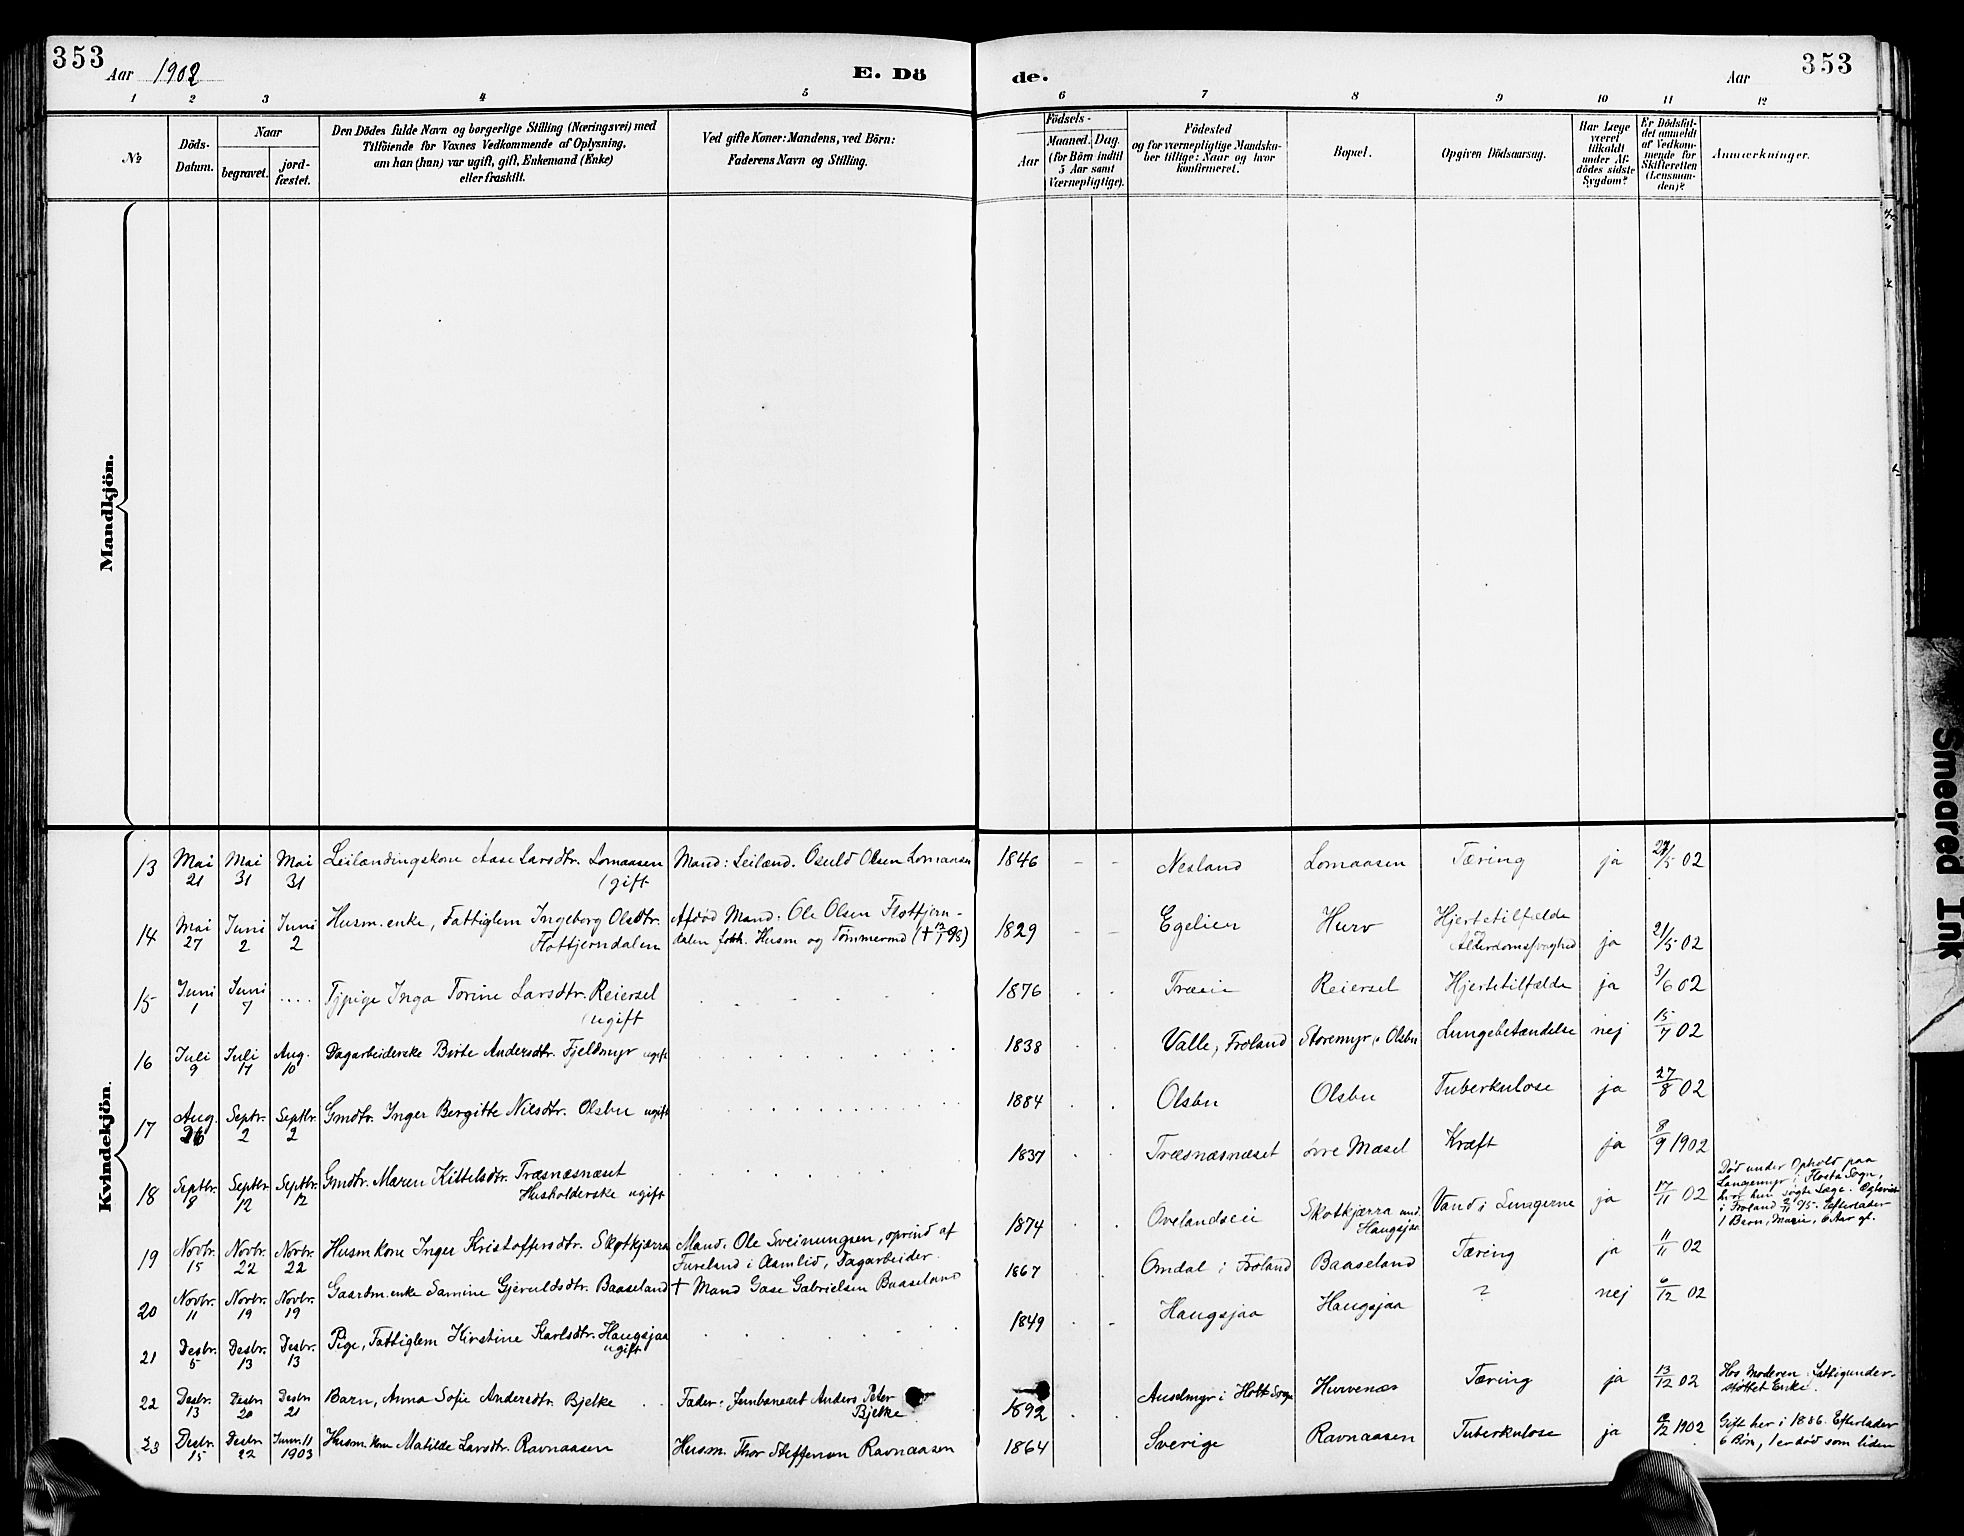 353
Aar 1902
E. Dö
de.
Aar
353
1 2 3 4 5 6 7 8 9 10 11 12
№
Döds-
Datum.
Naar
begravet.
jord-
fæstet.
Den Dödes fulde Navn og borgerlige Stilling (Næringsvei) med
Tilföiende for Voxnes Vedkommende af Oplysning,
om han (hun) var ugift, gift, Enkemand (Enke)
eller fraskilt.
Ved gifte Koner: Mandens, ved Börn:
Faderens Navn og Stilling.
Födsels-
Aar
Maaned. Dag.
(for Börn indtil
5 Aar samt
Værnepligtige).
Födested
og for værnepligtige Mandska-
ber tillige: Naar og hvor
konfirmeret.
Bopæl.
Opgiven Dödsaarsag.
Har Læge
været
tilkaldt
under Af-
dödes sidste
Sygdom?
Er Dödsfal-
det anmeldt
af Vedkom-
mende for
Skifteretten
(Lensman-
den)?
Anmærkninger.
Mandkjön.
Kvindekjön.
13 Mai 21 Mai 31 Mai 31 Leilændingskone Aase Larsdtr. Lomaasen
gift
Mand: Leilænd. Osuld Olsen Lomaasen
1846 - - Nesland Lomaasen Tæring ja 22/5 02
14 Mai 27 Juni 2 Juni 2 Husm.enke, Fattiglem Ingeborg Olsdtr.
Flottjerndalen
Afdød Mand: Ole Olsen Flottjern-
dalen forh. Husm og Tømmermd
1829 - - Egelien Hurv Hjertetilfælde
og Alderdomssvaghed ja 21/5 02
15 Juni 1 Juni 7 .... Tjpige Inga Torine Larsdtr. Reiersel
ugift
1876 Træei Reiersel Hjertetilfælde ja 3/6 02
16 Juli 9 Juli 17 Aug. 10 Dagarbeiderske Birte Andersdtr. Fjeldmyr ugift
1838 Valle, Froland Storemyr, Olsbu Lungebetændelse nej 15/7 02
17 Aug. 26 Septr. 2 Septbr. 2 Gmdtr. Inger Bergitte Nilsdtr. Olsbu ugift
1884 Olsbu Olsbu Tuberkulose ja 27/8 02
18 Septbr. 8 Septbr. 12 Septbr. 12 Gmdtr. Maren Kittelsdtr. Træsnæsnæset
Husholderske ugift
1837 Træsnæsnæset øvre Mæsel Kræft ja 8/9 1902
19 Novbr. 15 Novbr. 22 Novbr. 22 Husmkone Inger Kristoffersdtr. Skotkjærra
Mand: Ole Sveinungsen, oprind af
Fureland i Aamlid, Dagarbeider.
1874 Ovelandseie Skotkjærra und.
Haugsjaa
Vand i Lungerne ja 17/11 02
Død under Ophold paa
Langemyr i Flosta Sogn,
hvor hun søgte Læge. Egteviet
i Froland 2/11 95. Efterlader
1 Barn, Marie, 6 Aar gl.
20 Novbr. 11 Novbr. 19 Novbr. 19 Gaardm.enke Samine Gjeruldsdtr. Baaseland
† Mand Gase Gabrielsen Baaseland
1867 Omdal i Froland Baaseland Tæring ja 11/11 02
21 Desbr. 5 Desbr. 13 Desbr. 13 Pige, Fattiglem Kirstine Karlsdtr. Haugsjaa
ugift
1849 - Haugsjaa Haugsjaa ? nej 6/12 02
22 Desbr. 13 Desbr. 20 Desbr. 21 Barn, Anna Sofie Andersdtr. Bjelke
Fader: Jernbanearb. Anders Peter
Bjelke
1892 i Holt Sogn Hurvenæs Tæring ja 13/12 02
Hos Moderen: Fattigunder-
støttet Enke.
23 Desbr. 15 Desbr. 22 11 1903 Husm.kone Matilde Larsdtr. Ravnaasen
Husm. Thor Steffensen Ravnaasen
1864 Sverige Ravnaasen Tuberkulose ja /12 1902
Gift her i 1886. Efterlader
6 Børn, 1 er død som liden
Smeared Ink